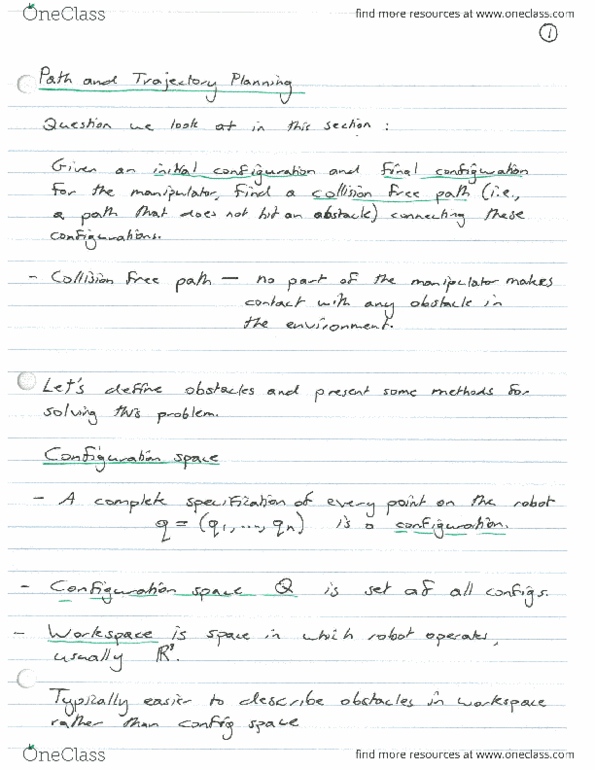 OneClass
find more resources at www.oneclass.com
1
Path and Trajectory Planning
Question we look at in this section :
Given an initial configuration and final configuration
for the manipulator, find a collision free path (i.e.,
a path that does not hit an obstacle) connecting these
configurations.
- Collision free path — no part of the manipulator makes
contact with any obstacle in
the environment.
Let's define obstacles and present some methods for
solving this problem.
Configuration space
- A complete specification of every point on the robot
q = (q₁, ..., qₙ) is a configuration.
- Configuration space Q is set of all configs.
- Workspace is space in which robot operates,
usually ℝ³.
Typically easier to describe obstacles in workspace
rather than config space
OneClass
find more resources at www.oneclass.com